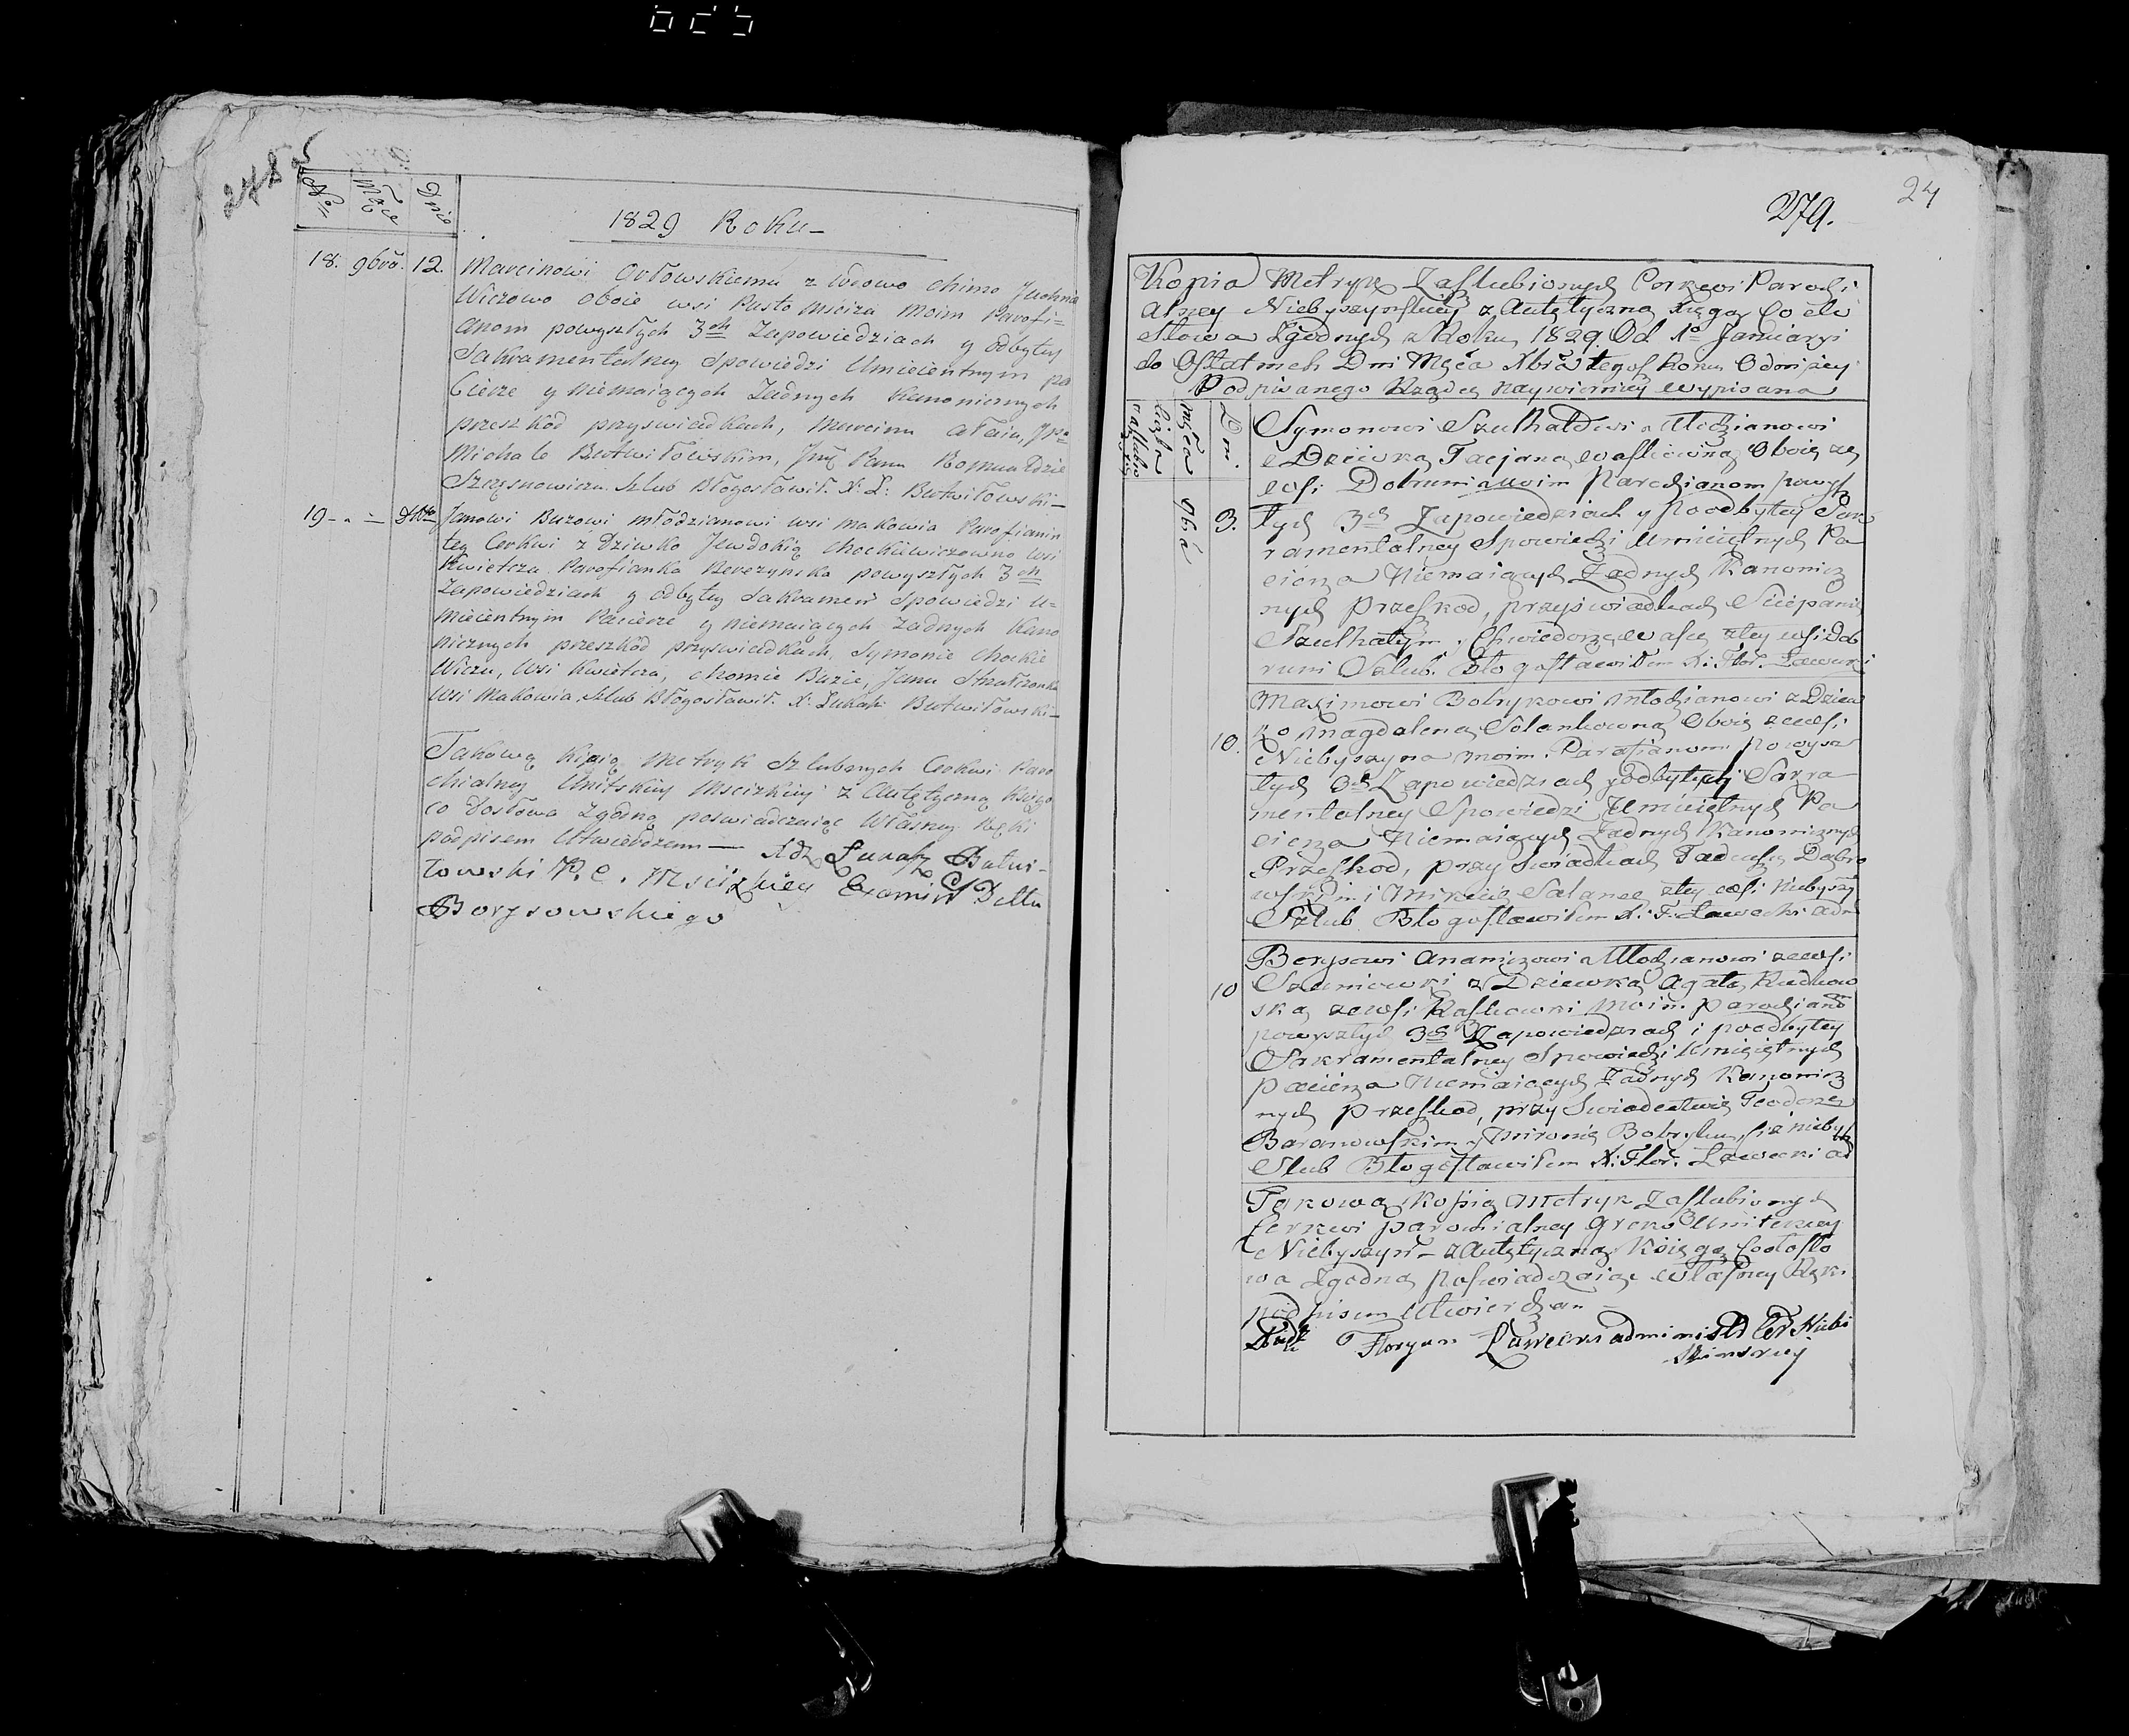 278
No
Mca
Dnie
1829 Roku
18. 9bra. 12. Marcinowi Orłowskiemu z wdową Chimą Juchnie
wiczową oboie wsi Pusto Mściża moim Parofi=
anom powyszłych 3ch Zapowiedziach y odbytey
Sakramentalney Spowiedzi Umieientnym pa
cierze y niemaiących żadnych kanonicznych
przeszkód przyświadkach, Marcinu
Michale Butwiłowskim, Panu Romualdzie
Szczęsnowiczu. Szlub Błogosławił. X: Ł: Butwiłowski
19 Janowi Buzowi młodzianowi wsi Makowia Parofianin
tey Cerkwi z Dziwką Jewdokią Chockiewiczowną wsi
Kwietcza Parofianka Berezynska powyszłych 3ch
Zapowiedziach y odbytey Sakramen Spowiedzi u=
mieientnym Pacierze y niemaiących żadnych kano
nicznych przeszkód przyświadkach, Symonie Chockie
wiczu, wsi Kwietcza, Chomie Buzie, Janu
wsi Makowia, Szlub Błogosławił. X: Łukasz Butwiłowski
Takową kopią metryk Szlubnych Cerkwi Paro
chialney Unitskiey Mścizkiey z Autętyczną Księgą
co Dosłowa Zgodną poswiadczaiąc Własney Ręki
podpisem Utwierdzam — Xdz Łukasz Butwi-
łowski P. C. Mścizkiey Examin Dettu
Borysowskiego
24
279.
Kopia Metryk Zaslubionych Cerkwi Parochi
alney Niebyszynskiey z Autętyczną Xięgą Co do
Słowa Zgodnych z Roku 1829. Od 1o Januaryi
do Ostatnich Dni Męca Xbra tegoż Roku Odniżey
Podpisanego Rządcy naywierniey wypisana
Męca
Dn.
9bra
3.
Symonowi Szulhatowi Młodzianowi
z Dziewką Tacjaną Wasilowną Oboie ze
wsi Dobruni moim Parochianom powysz
łych 3ch Zapowiedziach y poodbytey Sak
ramentalney Spowiedzi Umieiętnych Pa
cierza Niemaiących Żadnych Kanonicz
nych Przeszkod, przy świadkach Sciepanie
Szulhatym, z tey wsi Dob
runi Szlub. Błogosławiłem X: Flor. Ławecki
10. Maximowi Bobrykowi Młodzianowi z Dziew
ką Magdaleną Solankowną Oboie ze wsi
Niebyszyna moim Parafianom Powysz
łych 3ch Zapowiedziach y odbytych Sakra
mentalney Spowiedzi Umieiętnych Pa
cierza Niemaiących Żadnych Kanonicznych
Przeszkod, przy Świadkach Tadeuszu Dąbro
wskim i Solance z tey wsi Niebyszy
Szlub Błogosławiłem X: F: Ławecki adm
10 Borysowi Ananiczowi Młodzianowi ze wsi
z Dziewką Agatą Rudkow
ską ze wsi Raskowki Moim Parochiano
powyszłych 3ch Zapowiedziach i poodbytey
Sakramentalney Spowiedzi Umieiętnych
pacierza Niemaiących Żadnych Kanonicz
nych przeszkod, przy Świadectwie Teodorze
Baranowskim y Mironie Bobryku
Slub Błogosławiłem X: Flor. Ławecki ad
Takową Kopią Metryk Zaslubionych
Cerkwi parochialney Greko Unitskiey
Niebyszyn z Autętyczną Księgą Codosło
wa Zgodną Poświadczaiąc własney Ręki
podpisem Utwierdzam
Floryan Ławecki administr Cer Niebi
szinskiey